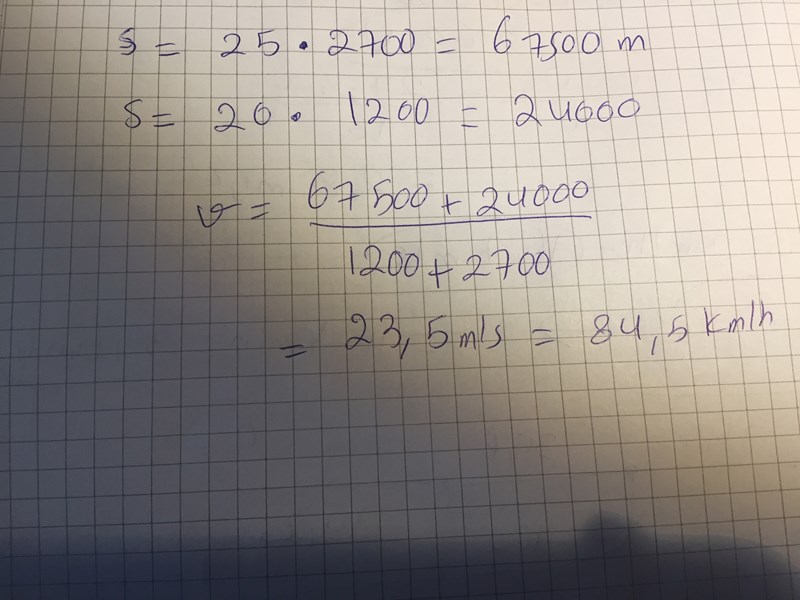 s = 25 · 2700 = 67500 m
s = 20 · 1200 = 24000
v = 67500 + 24000
1200 + 2700
= 23,5 m/s = 84,5 km/h